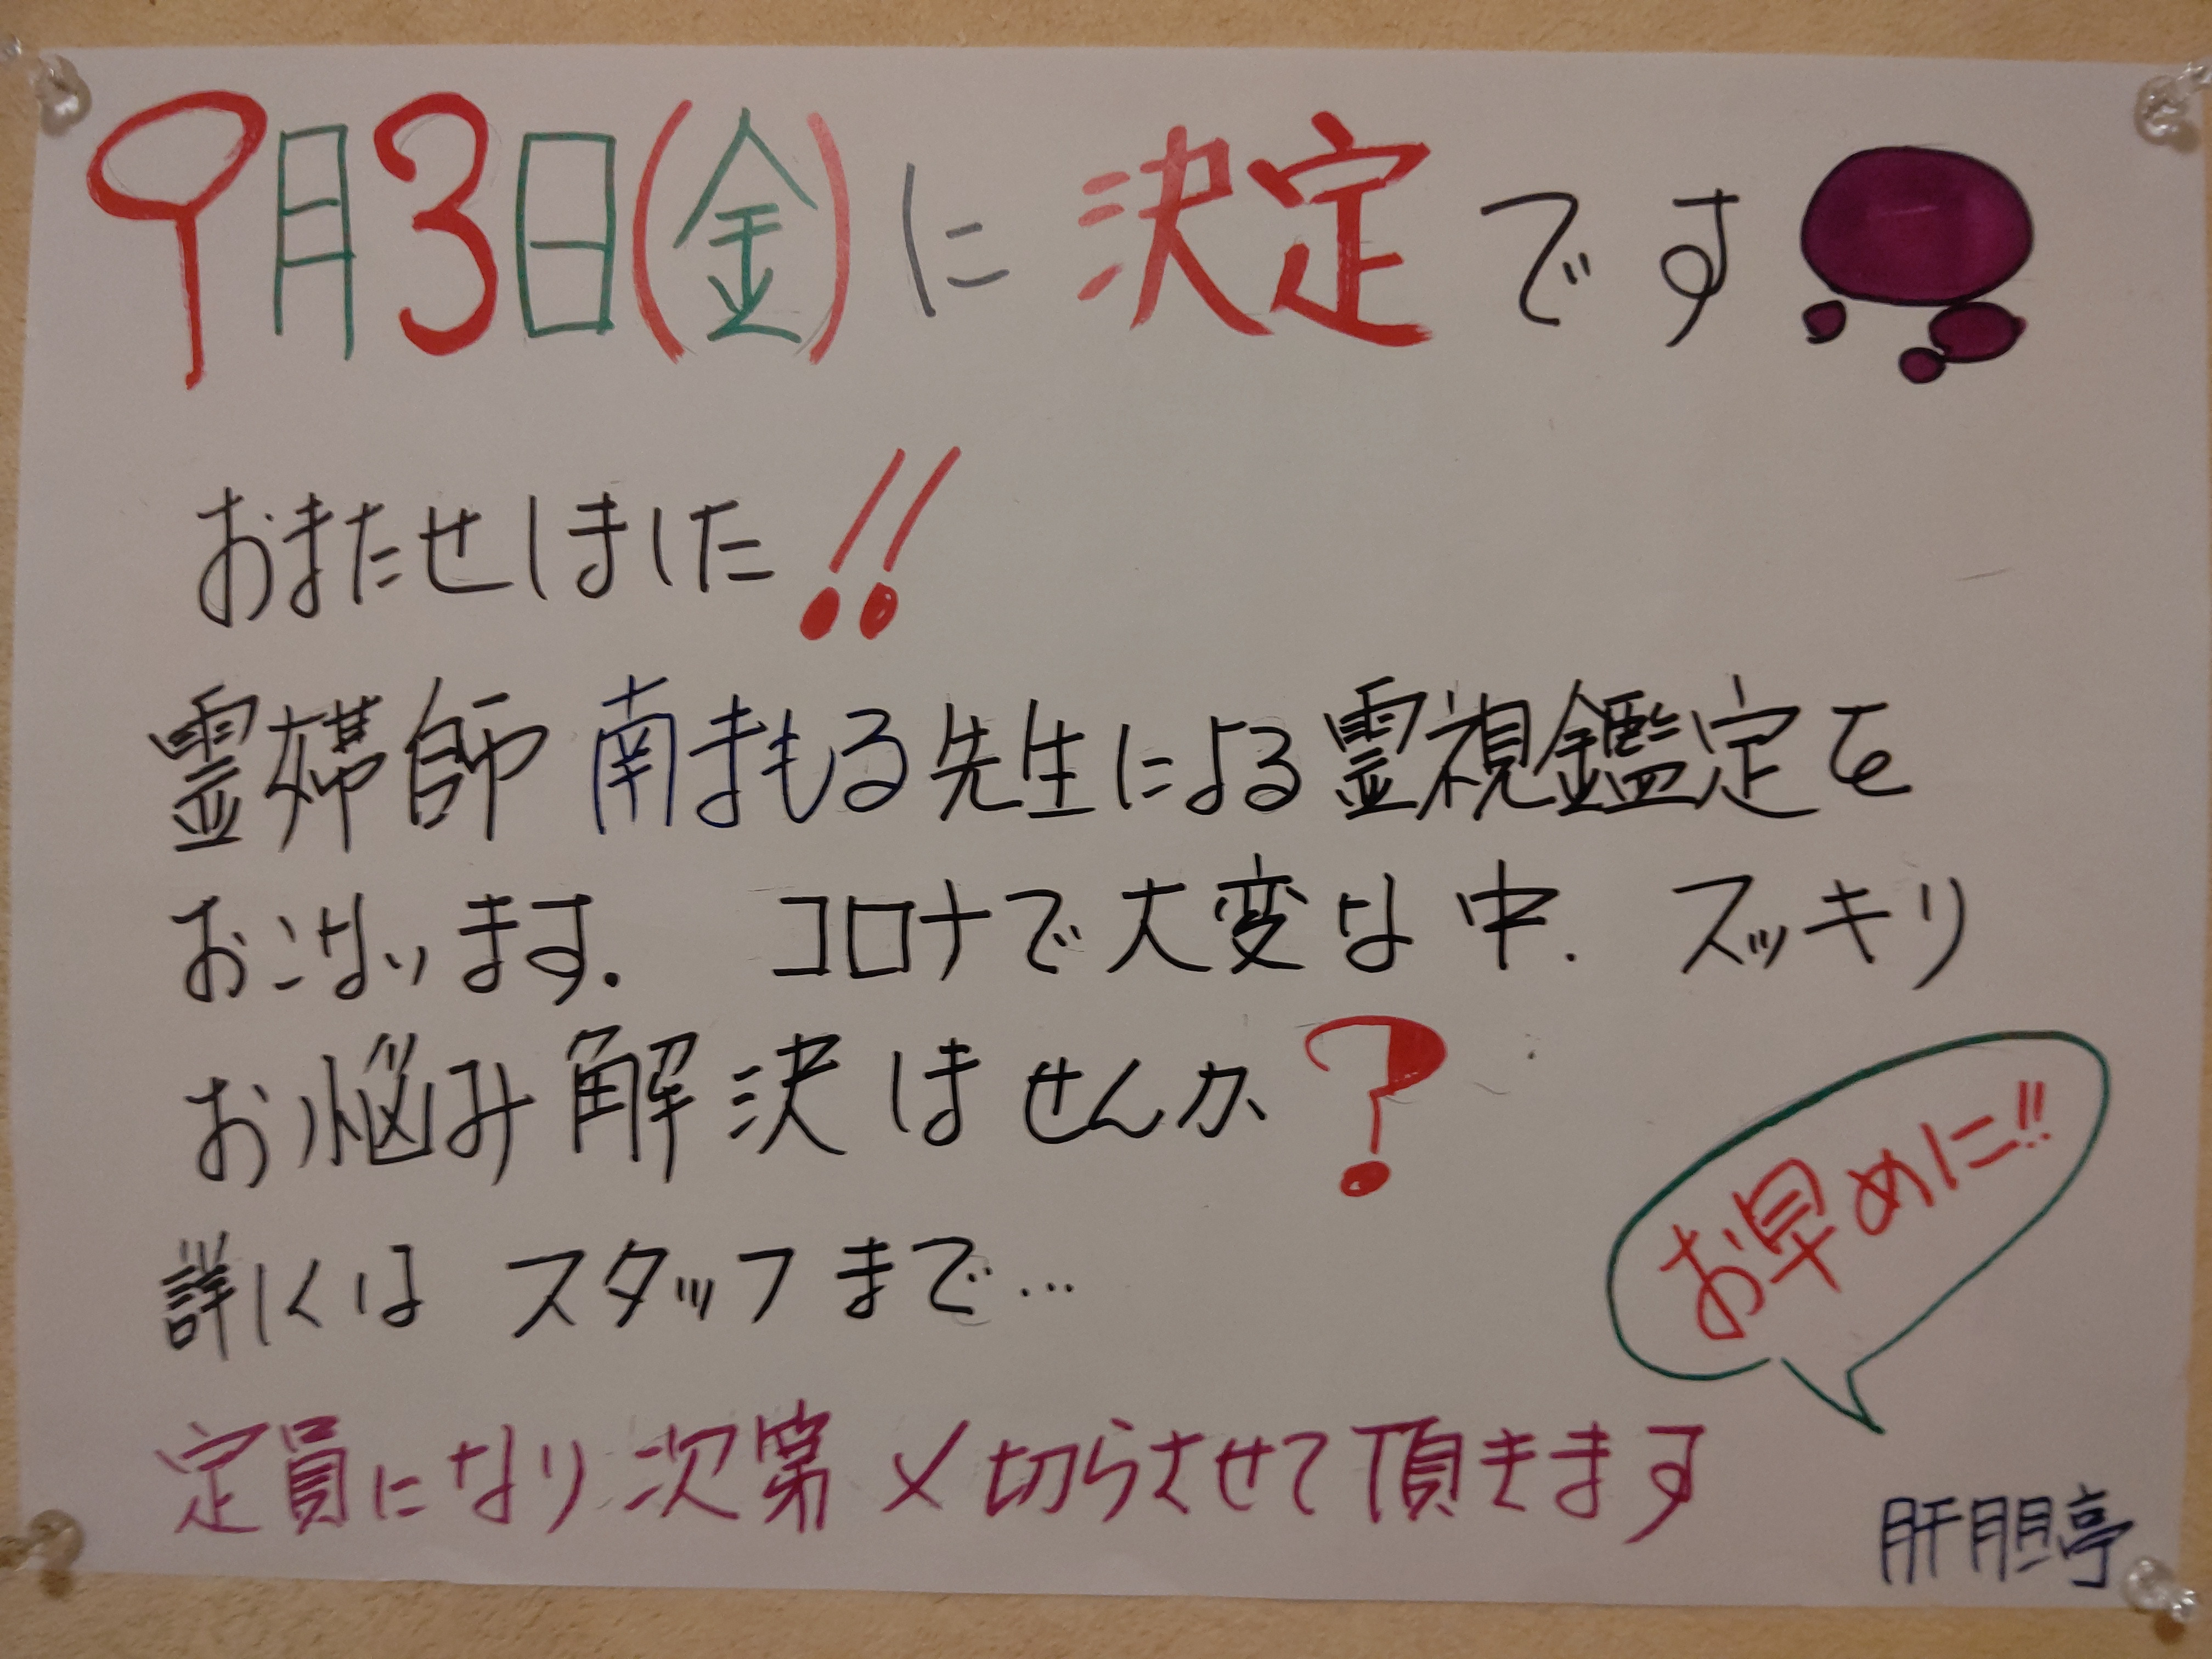 9月3日(金)に決定です
おまたせしました!!
霊媒師 南まもる先生による霊視鑑定を
おこないます. コロナで大変な中. スッキリ
お悩み解決しませんか?
詳しくは スタッフまで…
お早めに!!
定員になり次第 〆切らさせて頂きます
肝胆亭